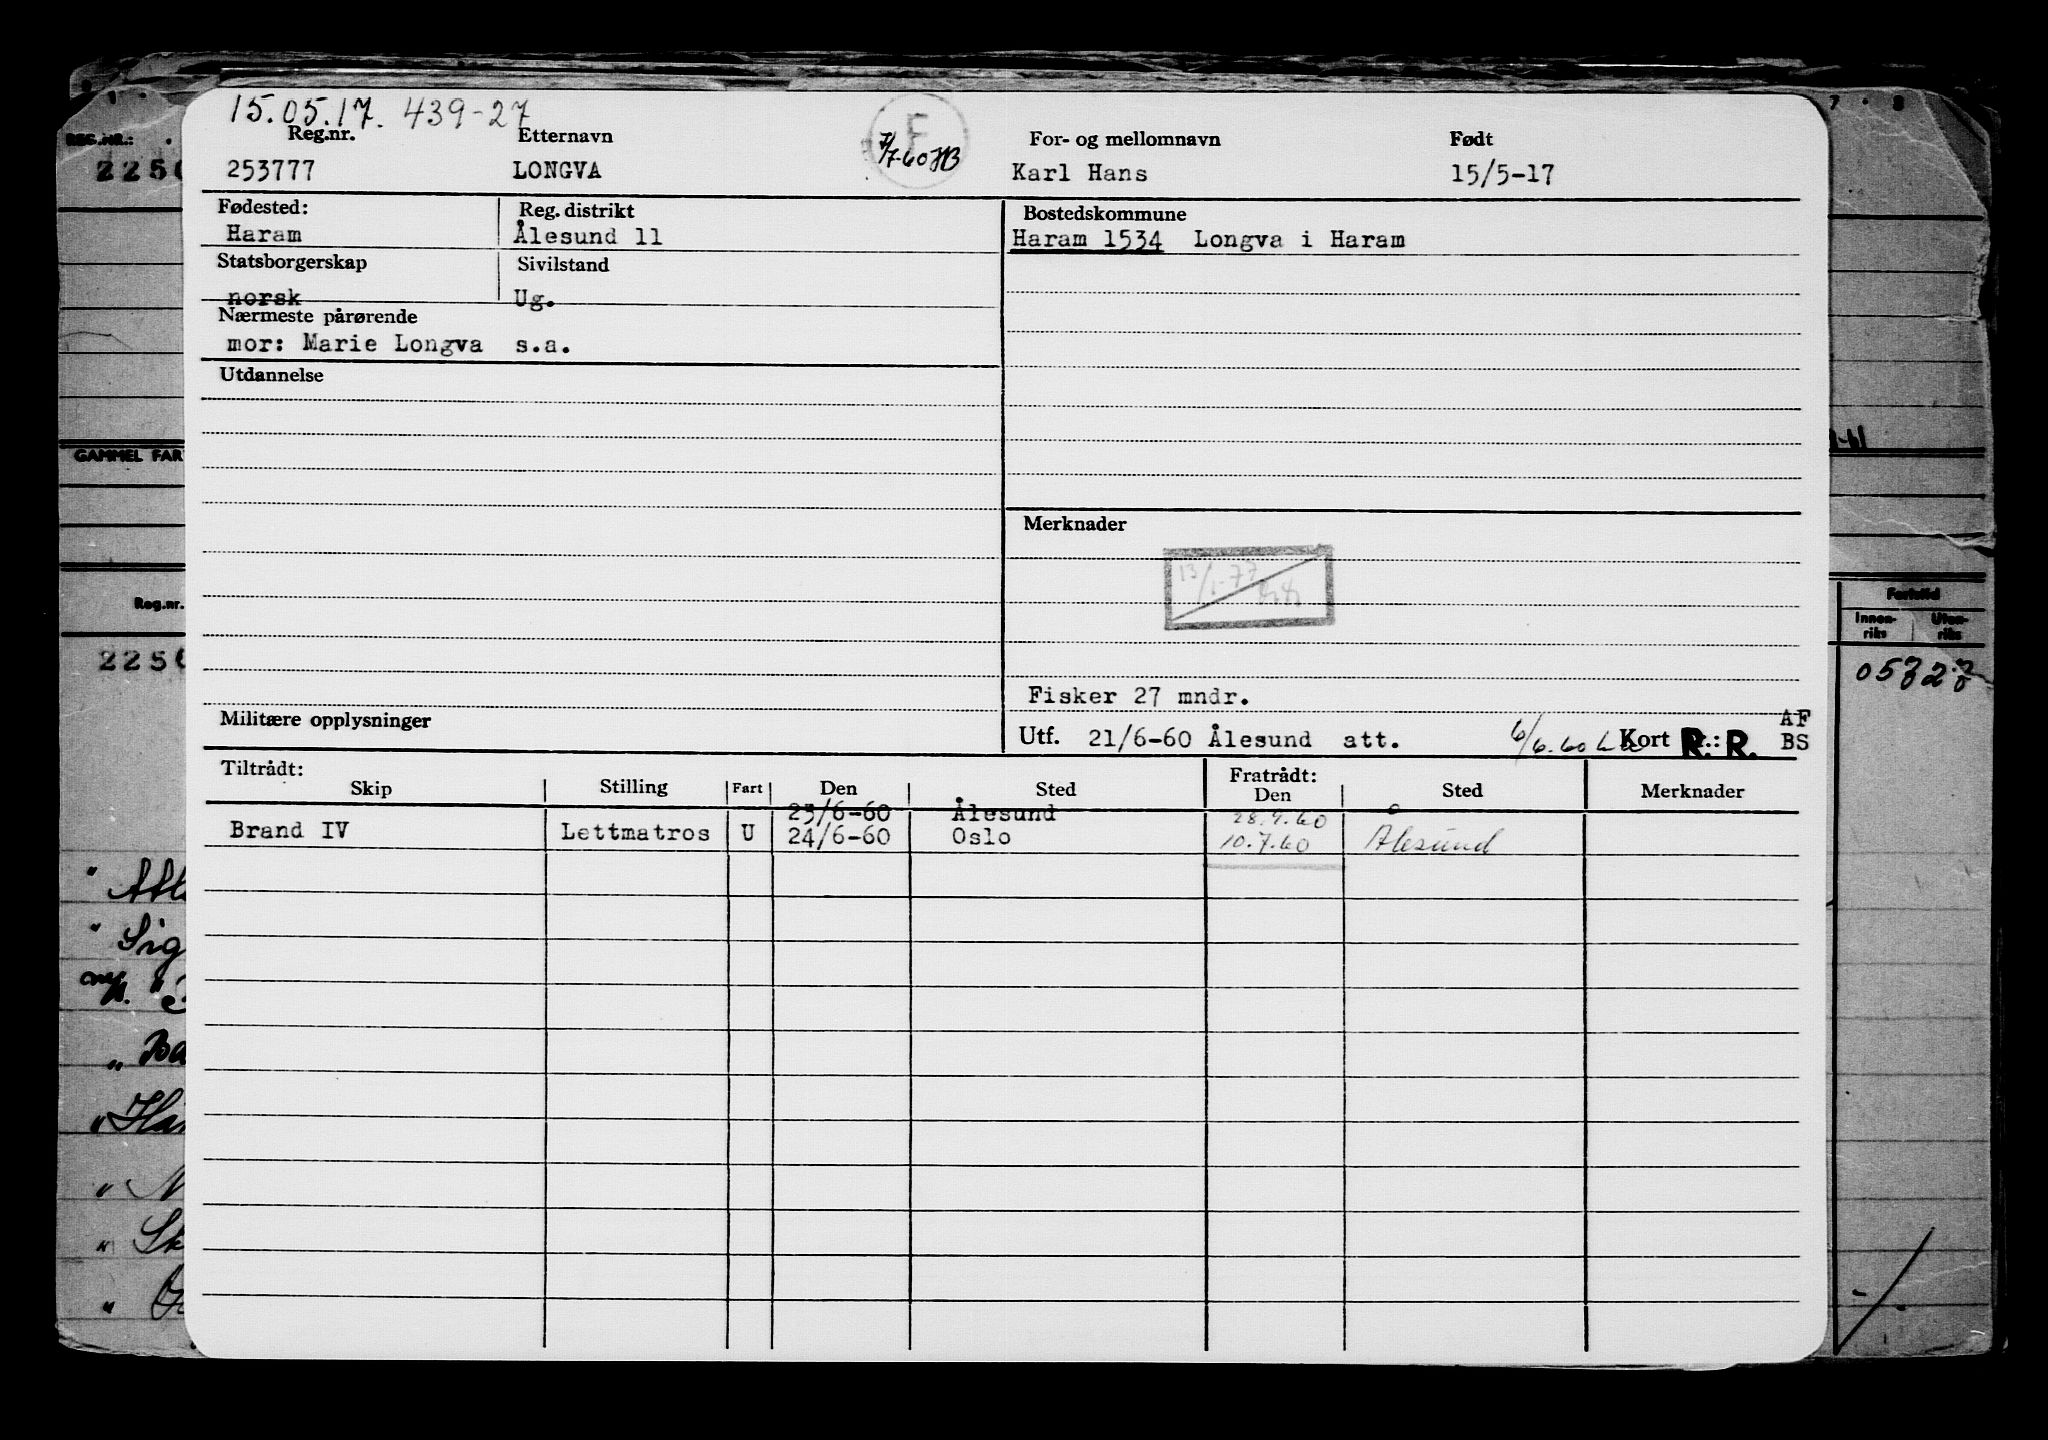 15.05.17. 439-27
Reg.nr. Etternavn For- og mellomnavn Født
253777 LONGVA F 7/7-60 HB Karl Hans 15/5-17
Fødested: Reg. distrikt Bostedskommune
Haram Ålesund 11 Haram 1534 Longva i Haram
Statsborgerskap Sivilstand
norsk Ug.
Nærmeste pårørende
mor: Marie Longva s.a.
Utdannelse
Merknader
13/1-77
Fisker 27 mndr.
Militære opplysninger
Utf. 21/6-60 Ålesund att. 6/6.60 Kort R.: R. AF BS
Tiltrådt: Fratrådt:
Skip Stilling Fart Den Sted Den Sted Merknader
23/6-60 Ålesund 28.9.60
Brand IV Lettmatros U 24/6-60 Oslo 10.7.60 Ålesund
REG.NR.:
2250
GAMMEL FAR
Reg.nr.
2250
" Atl
" Sig
" Ha
" N
" Sk
7 . 8
Fartstid
Innen-riks Uten-riks